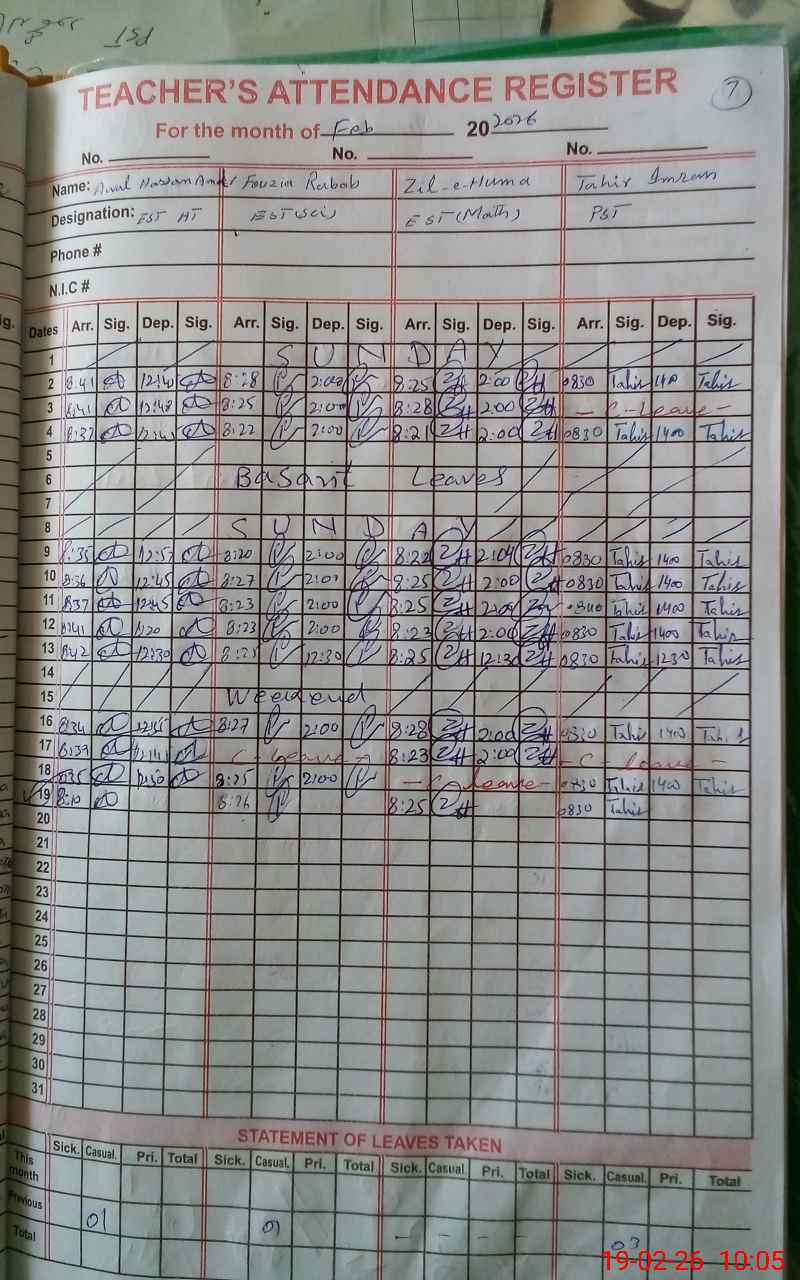 TEACHER'S ATTENDANCE REGISTER 7
For the month of Feb 20 2026
No. No. No.
Name: Fouzia Rabab Zil-e-Huma Tahir Imran
Designation: EST HT EST (Sci) EST (Math) PST
Phone #
N.I.C #
Dates Arr. Sig. Dep. Sig. Arr. Sig. Dep. Sig. Arr. Sig. Dep. Sig. Arr. Sig. Dep. Sig.
1 SUNDAY
2 8:41 8:28 2:00 8:25 2:00 0830 Tahir 1400 Tahir
3 8:41 8:25 2:00 8:28 2:00 - C - Leave -
4 8:37 8:22 2:00 8:21 2:00 0830 Tahir 1400 Tahir
5
6 Basant Leaves
7
8 SUNDAY
9 8:35 12:57 8:20 2:00 8:22 2:04 0830 Tahir 1400 Tahir
10 8:36 12:45 8:27 2:01 8:25 2:00 0830 Tahir 1400 Tahir
11 8:37 12:45 8:23 2:00 8:25 Tahir 1400 Tahir
12 8:41 1:20 8:23 2:00 8:23 2:00 0830 Tahir 1400 Tahir
13 8:42 12:30 12:30 8:25 12:30 0830 Tahir 1230 Tahir
14
15 Weekend
16 8:34 8:27 2:00 8:28 2:00 Tahir 1400
17 8:39 C - leave - 8:23 2:00 - C - leave -
18 8:35 12:50 8:25 2:00 - C - leave - 0830 Tahir 1400 Tahir
19 8:10 8:26 8:25 0830 Tahir
20
21
22
23
24
25
26
27
28
29
30
31
STATEMENT OF LEAVES TAKEN
Sick. Casual. Pri. Total Sick. Casual. Pri. Total Sick. Casual Pri. Total Sick. Casual. Pri. Total
This month
Previous
Total 01 01 - - - - 03
19-02-26 10:05